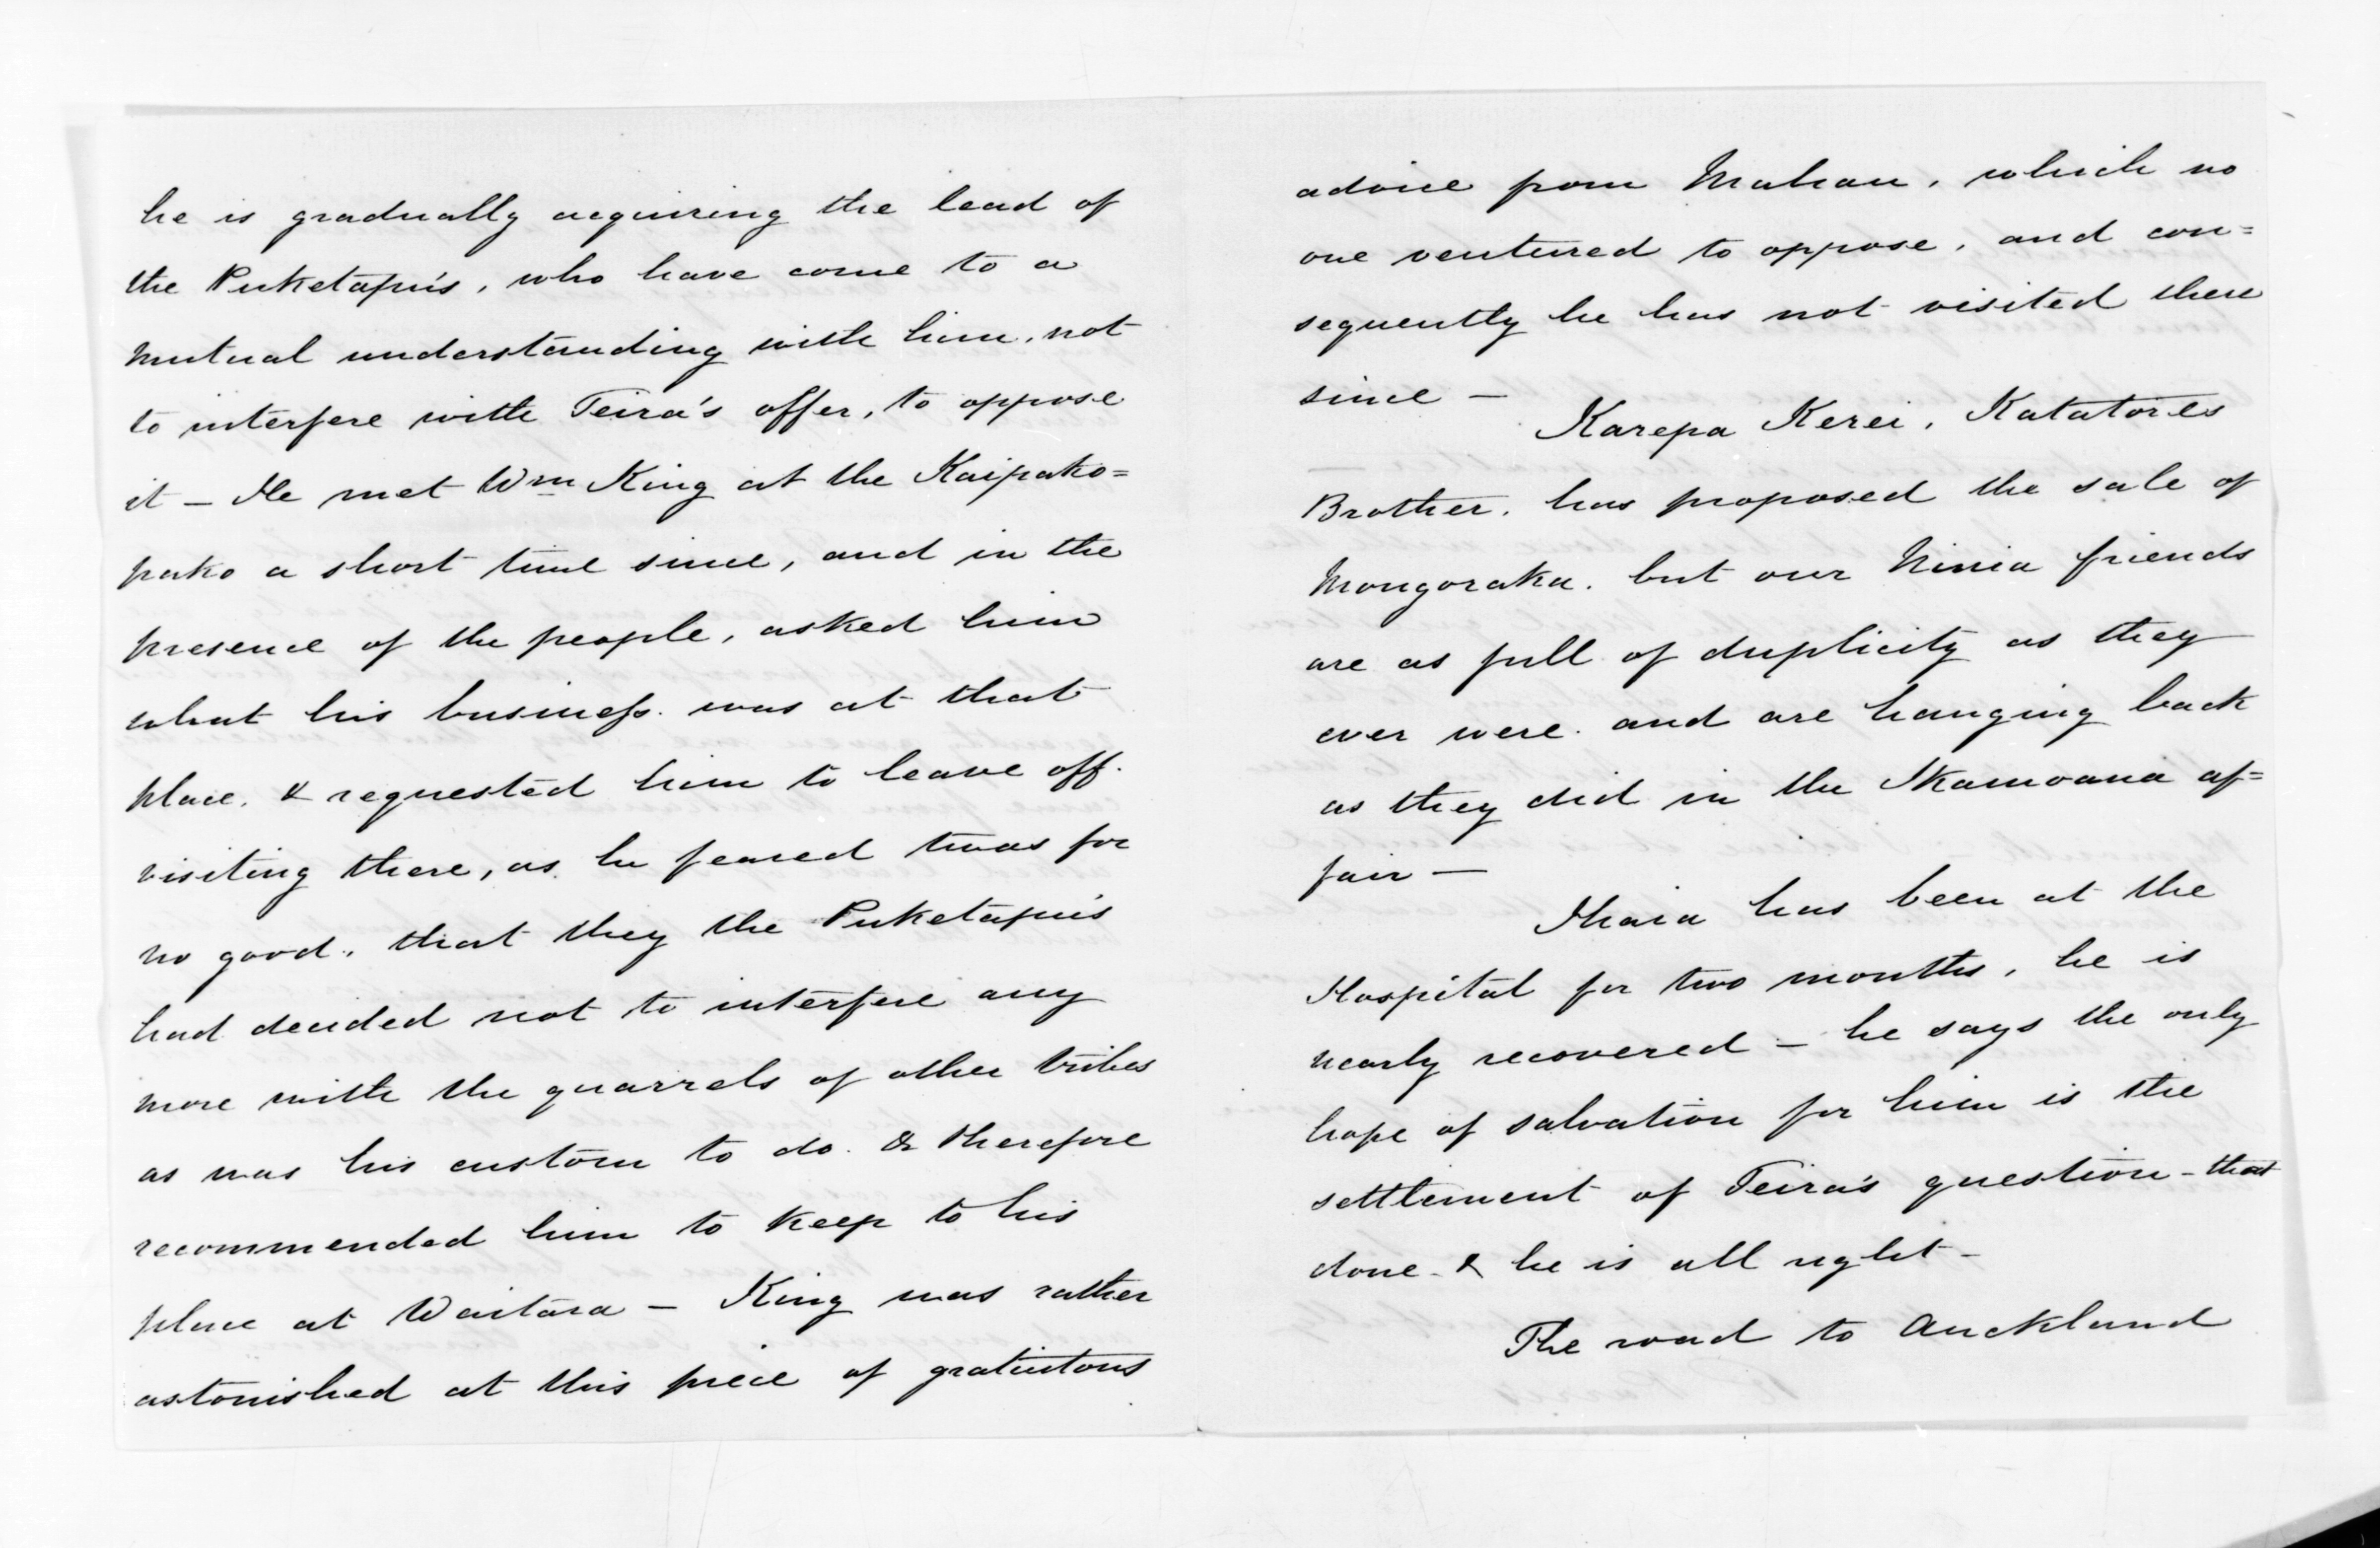 he is gradually acquiring the lead of
the Puketapu's, who have come to a
mutual understanding with him, not
to interfere with Teira's offer, to oppose
it – He met Wm King at the Kaipako=
pako a short time since, and in the
presence of the people, asked him
what his business was at that
place, & requested him to leave off
visiting there, as he feared twas for
no good, that they the Puketapu's
had decided not to interfere any
more with the quarrels of other tribes
as was his custom to do. & therefore
recommended him to keep to his
place at Waitara – King was rather
astonished at this piece of gratuitous
advice from Mahau, which no
one ventured to oppose, and con=
sequently he has not visited there
since –
Karepa Kerei, Katatores
Brother, has proposed the sale of
Mongoraka. but our Ninia friends
are as full of duplicity as they
ever were. and are hanging back
as they did in the Ikamoana af=
fair –
Ihaia has been at the
Hospital for two months, he is
nearly recovered – he says the only
hope of salvation for him is the
settlement of Teira's question – that
done. & he is all right –
The road to Auckland